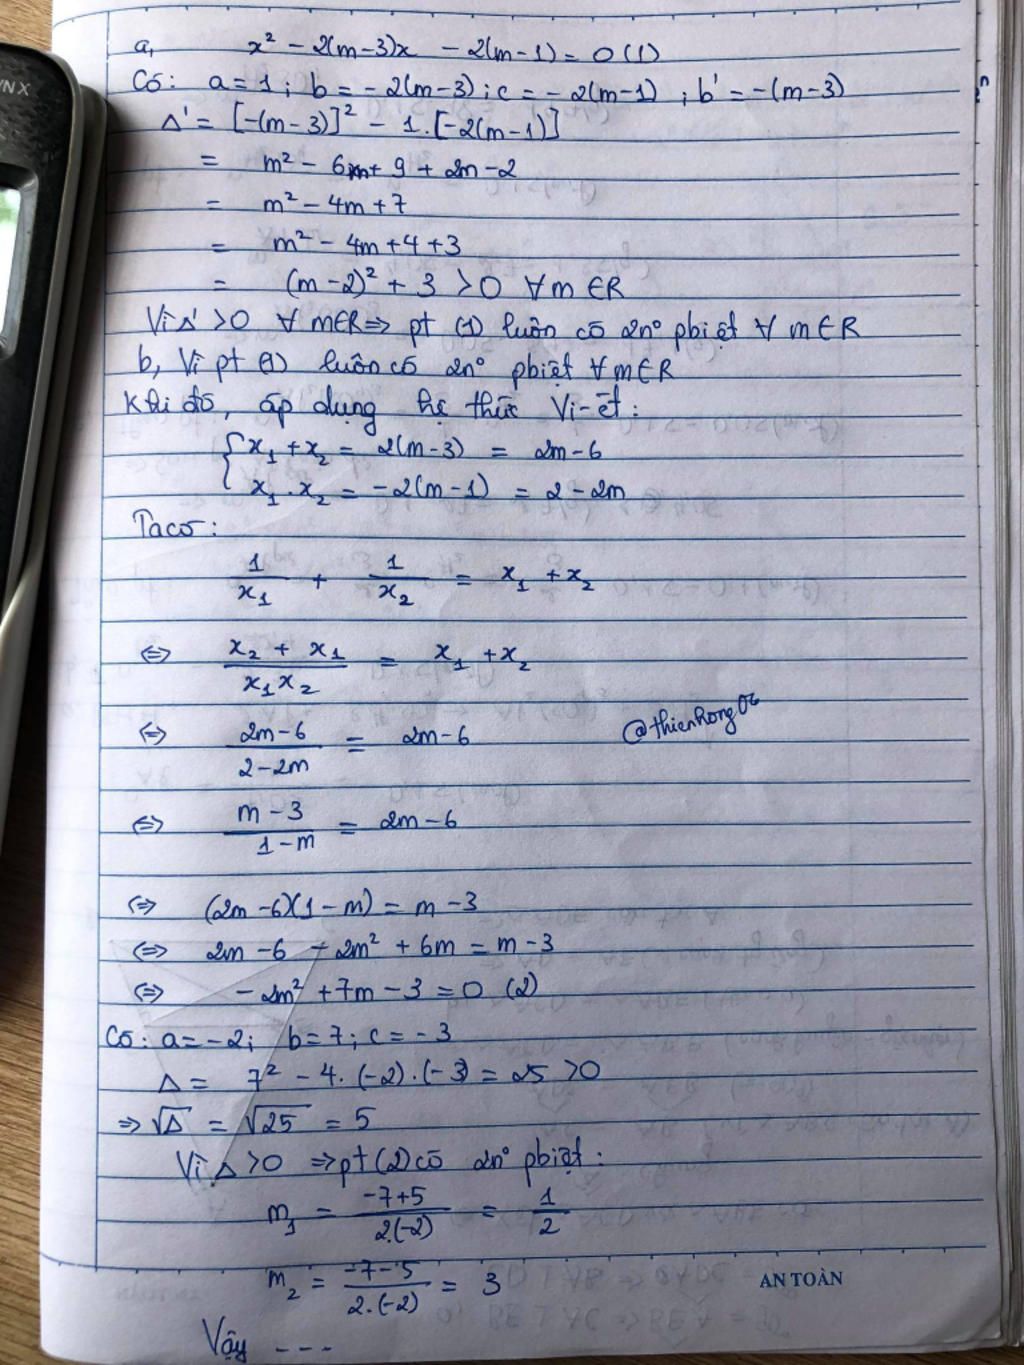 a, x² - 2(m-3)x - 2(m-1) = 0 (1)
Có: a = 1; b = -2(m-3); c = -2(m-1); b' = -(m-3)
Δ' = [-(m-3)]² - 1.[-2(m-1)]
= m² - 6m + 9 + 2m - 2
= m² - 4m + 7
= m² - 4m + 4 + 3
= (m-2)² + 3 > 0 ∀ m ∈ R
Vì Δ' > 0 ∀ m ∈ R ⇒ pt (1) luôn có 2n° pbiệt ∀ m ∈ R
b, Vì pt (1) luôn có 2n° pbiệt ∀ m ∈ R
Khi đó, áp dụng hệ thức Vi-ét:
{ x₁ + x₂ = 2(m-3) = 2m-6
x₁ . x₂ = -2(m-1) = 2-2m
Ta có:
1/x₁ + 1/x₂ = x₁ + x₂
⇔ (x₂ + x₁)/(x₁x₂) = x₁ + x₂
⇔ (2m-6)/(2-2m) = 2m-6
@thienhong06
⇔ (m-3)/(1-m) = 2m-6
⇔ (2m-6)(1-m) = m-3
⇔ 2m - 6 - 2m² + 6m = m-3
⇔ -2m² + 7m - 3 = 0 (2)
Có: a = -2; b = 7; c = -3
Δ = 7² - 4.(-2).(-3) = 25 > 0
⇒ √Δ = √25 = 5
Vì Δ > 0 ⇒ pt (2) có 2n° pbiệt:
m₁ = (-7+5)/(2.(-2)) = 1/2
m₂ = (-7-5)/(2.(-2)) = 3
AN TOÀN
Vậy ---